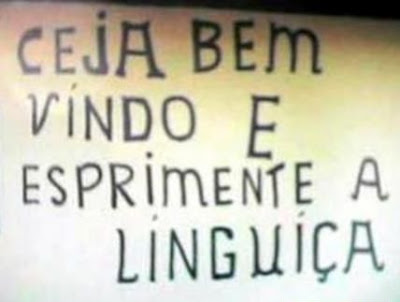 CEJA BEM
VINDO E
ESPRIMENTE A
LINGUIÇA